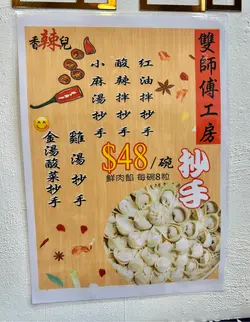 雙師傅工房
抄手
香辣兒
紅油拌抄手
酸辣拌抄手
小麻湯抄手
$48/碗
鮮肉餡 每碗8粒
雞湯抄手
金湯酸菜抄手